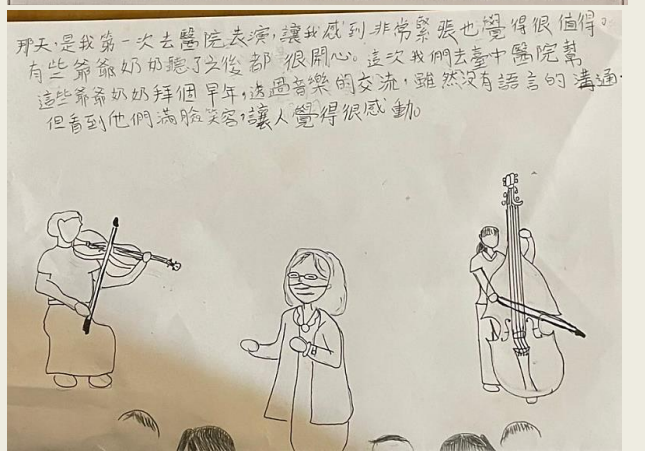 那天,是我第一次去醫院表演,讓我感到非常緊張也覺得很值得。
有些爺爺奶奶聽了之後都很開心。這次我們去臺中醫院幫
這些爺爺奶奶拜個早年,透過音樂的交流,雖然沒有語言的溝通,
但看到他們滿臉笑容,讓人覺得很感動。